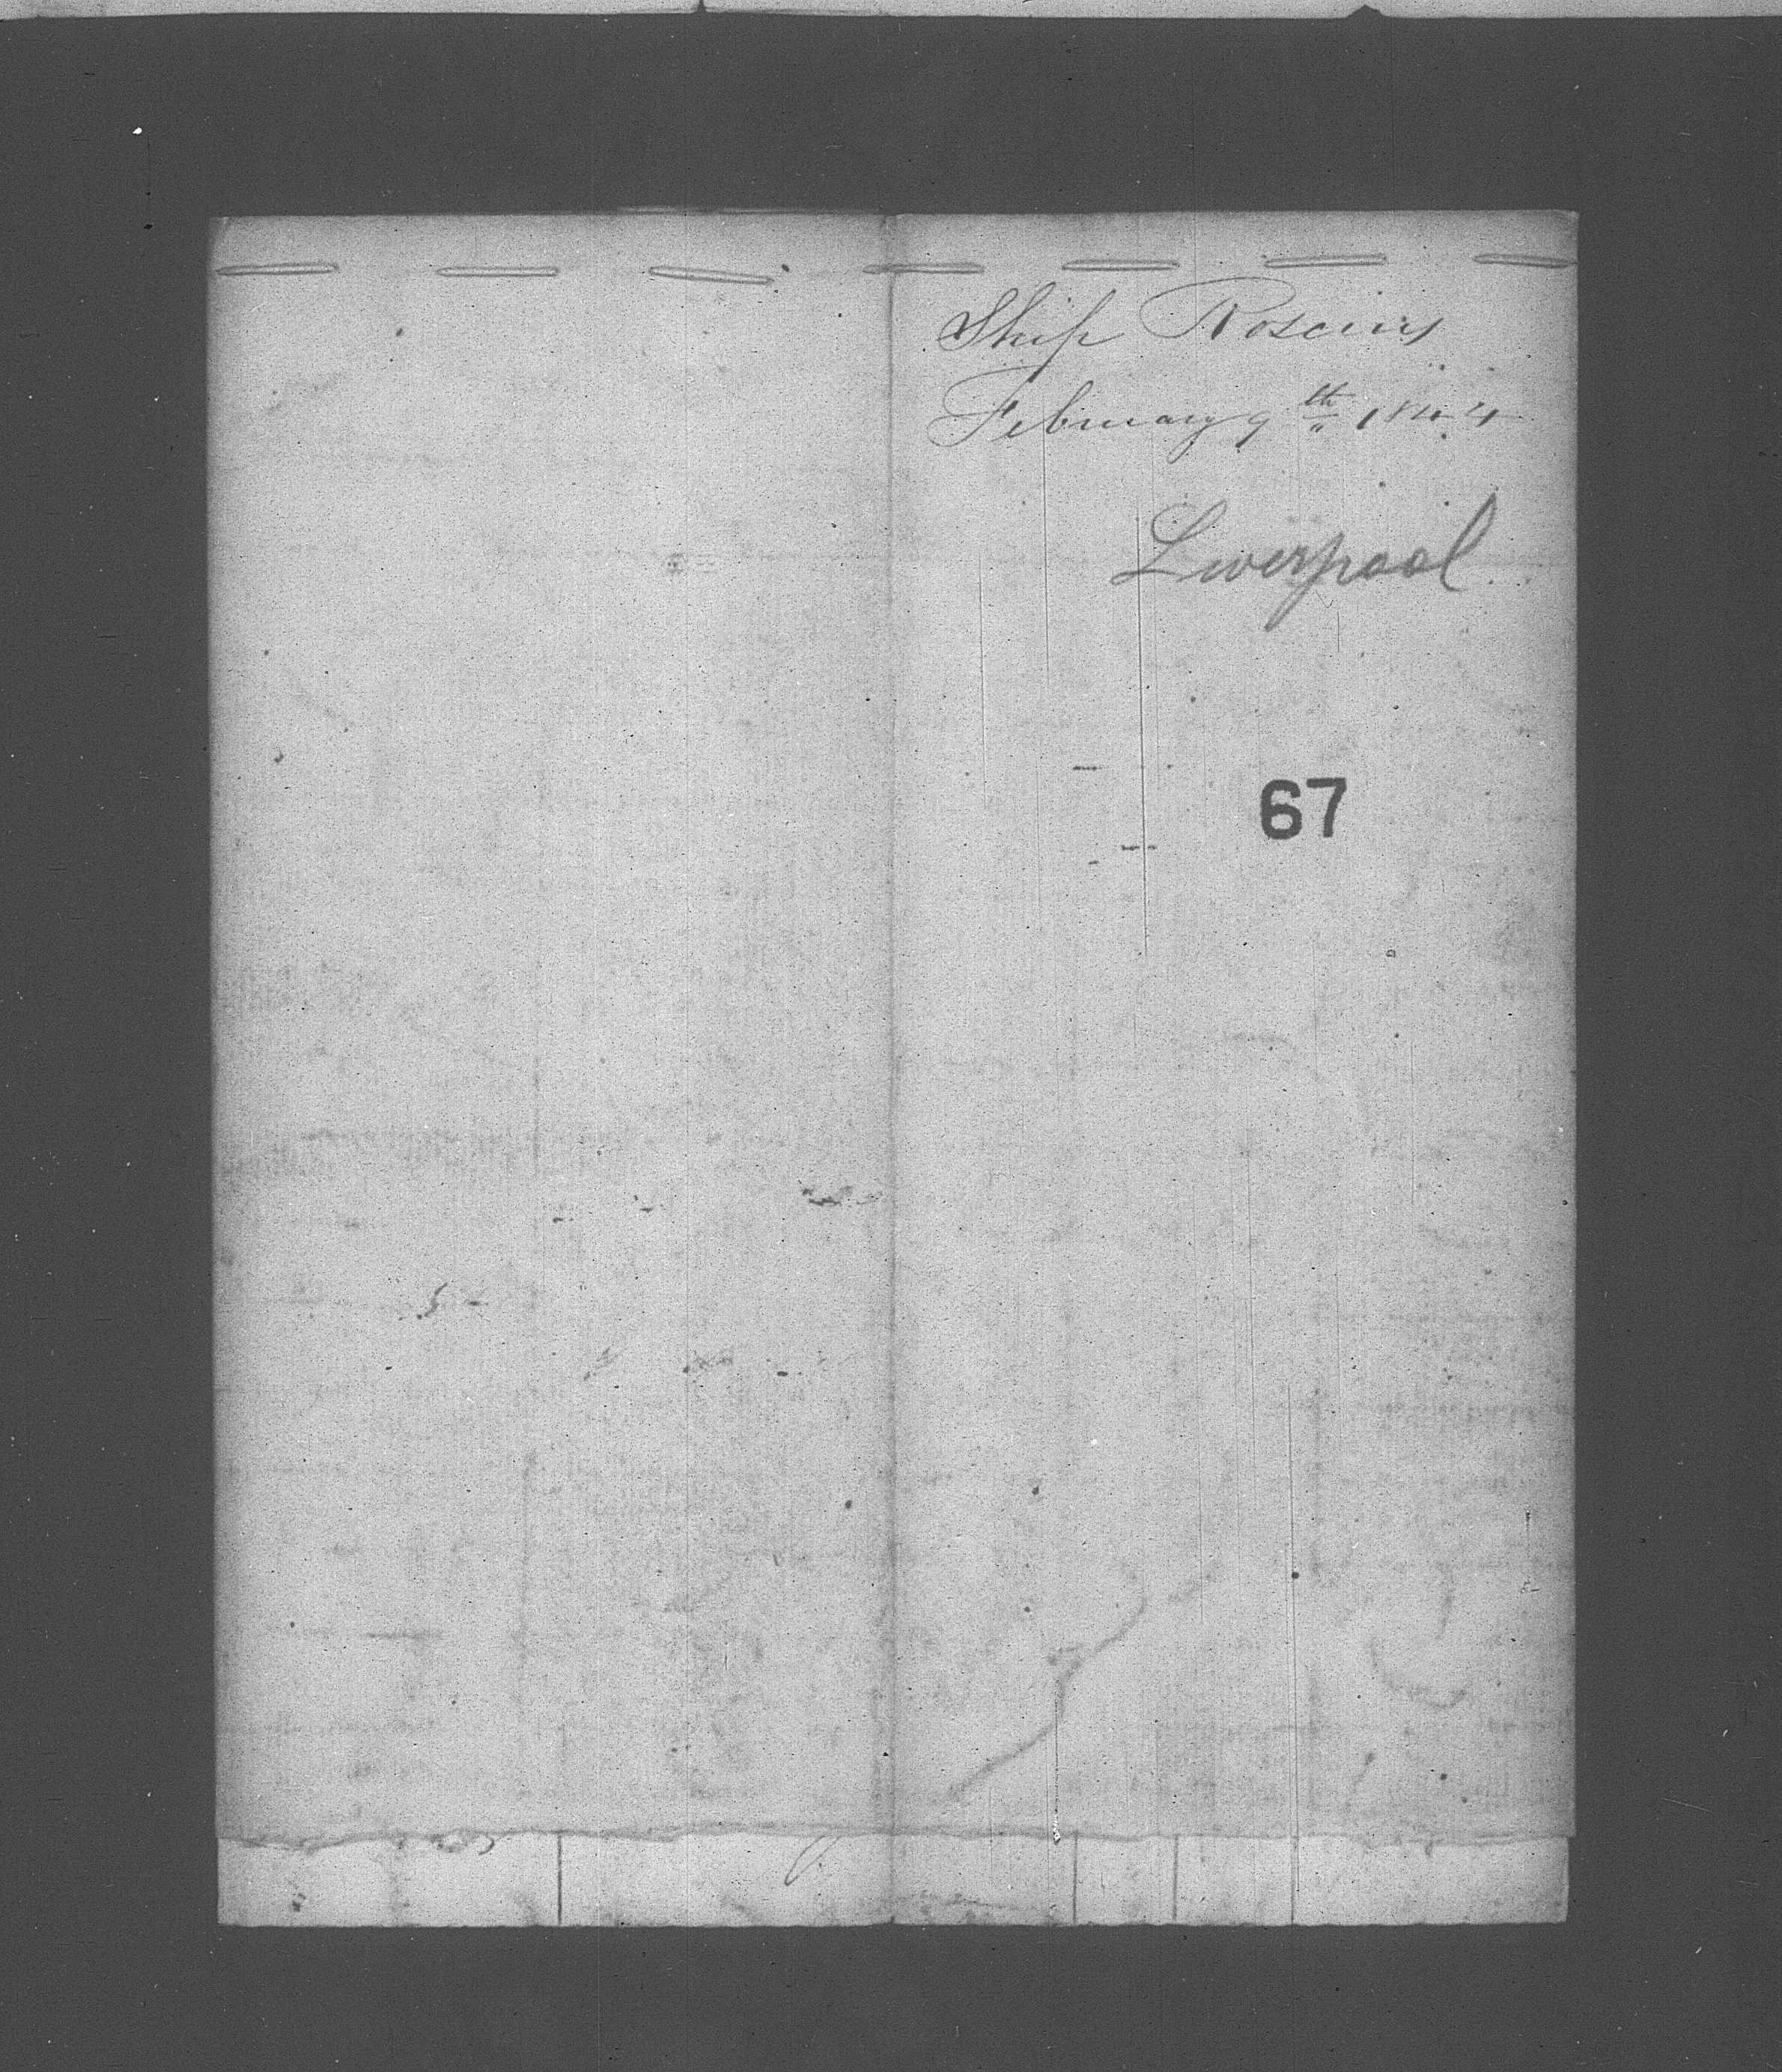 Ship Roscius
February 9th 1844
Liverpool
67